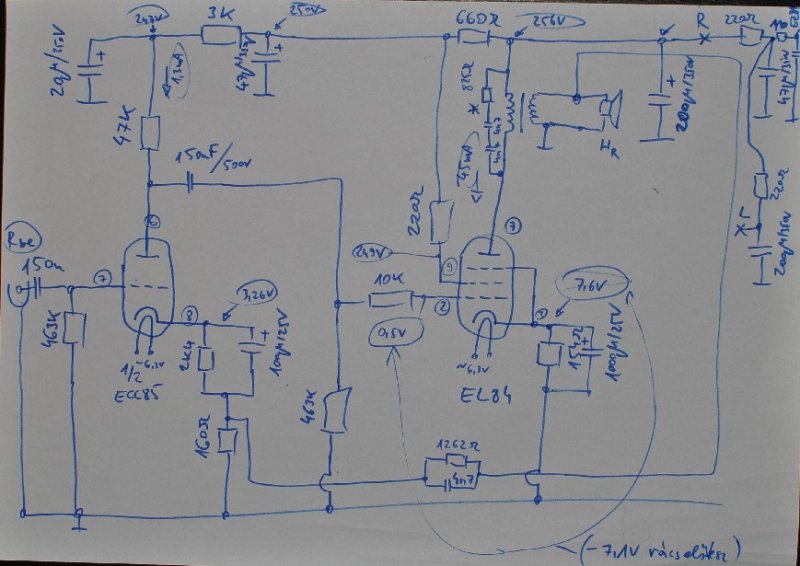 247V
3K
250V
660Ω
256V
R
220Ω
20µ/350V
+
1,3mA
47µ/350V
+
825Ω
+
200µ/350V
47µ/350V
47K
150nF/500V
4n7
4n7
45mA
220Ω
220Ω
200µ/350V
Rbe
150n
7
249V
9
7
10K
2
7,6V
3,26V
0,5V
463K
1/2
~6,3V
ECC85
2K4
+
100µ/25V
~6,3V
EL84
154Ω
+
1000µ/25V
160Ω
463K
1262Ω
4n7
(-7,1V rácselőfesz)